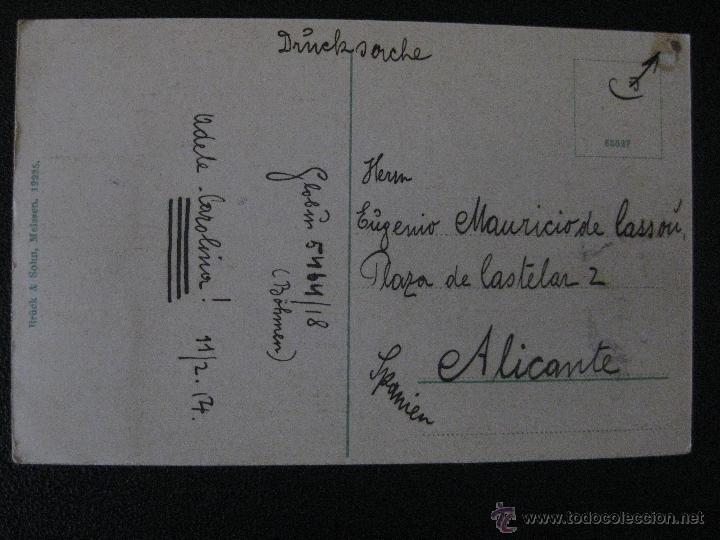 Drucksache
65527
Herrn
Eugenio Mauricio de Cassou,
Plaza de Castelar 2
Alicante
Spanien
Globus 5464/18
(Böhmen)
Adele-Carolina! 11/2.14.
Brück & Sohn, Meissen. 12225.
todocoleccion
www.todocoleccion.net